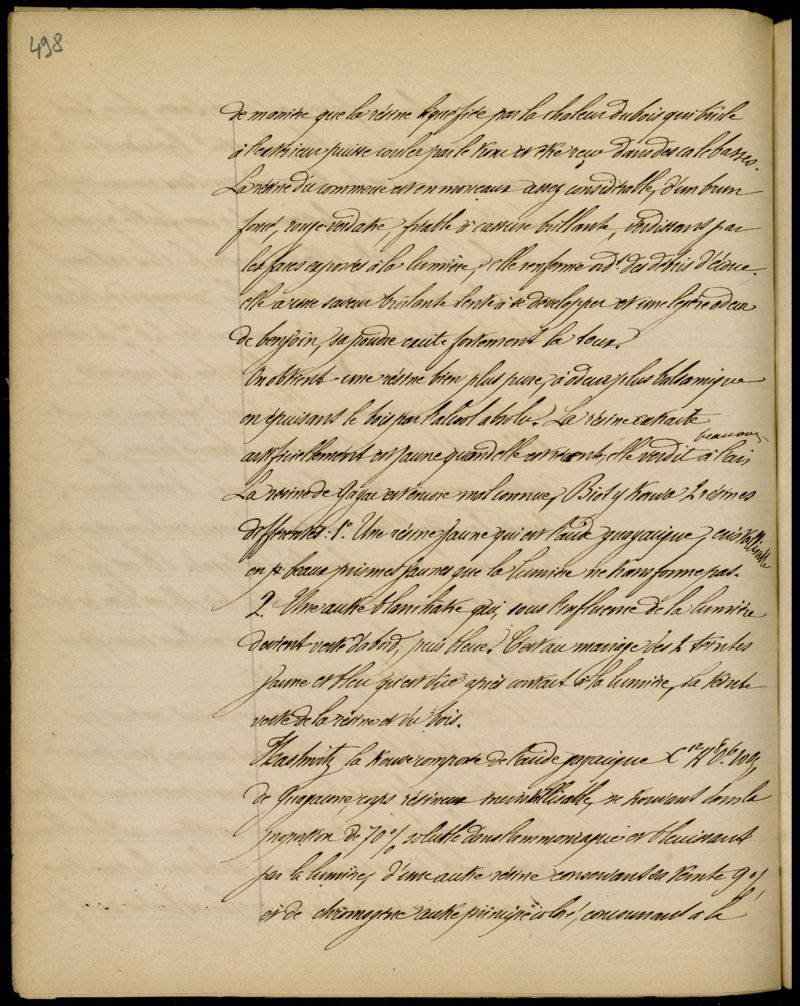 498
de manière que la résine liquéfiée par la chaleur du bois qui brûle
à l'extérieur puisse couler par le trou et être reçu dans des calebasses.
La résine du commerce est en morceaux assez considérable, d'un brun
foncé, rouge verdatre, friable à cassure brillante, verdissant par
les faces exposées à la lumière, elle renferme ord.t des débris d'écorce,
elle a une saveur brûlante lente à se developper et une légère odeur
de benjoin, sa poudre excite fortement la toux.
On obtient une résine bien plus pure, à odeur plus balsamique
en épuisant le bois par l'alcool absolu. La résine extraite
beaucoup
artificiellement est jaune quand elle est récente; elle verdit à l'air
La résine de Gayac est encore mal connue, Biot y trouva 2 résines
différentes: 1°. Une résine jaune qui est l'acide guayacique, cristallisable
en beaux prismes jaunes que la lumière ne transforme pas.
2. Une autre blanchâtre qui, sous l'influence de la lumière
devient verte d'abord, puis bleue. C'est au mariage des 2 teintes
jaune et bleu qu'est due après contact à la lumière, la teinte
verte de la résine et du bois.
la trouve composée de l'acide gayacique C12H8O6
de Guayacine, corps résineux incristallisable, se trouvant dans la
proportion de 70% soluble dans l'ammoniaque et bleuissant
par la lumière, d'une autre résine conservant sa teinte 9%
et de chromogène autre principe coloré, concourant à la